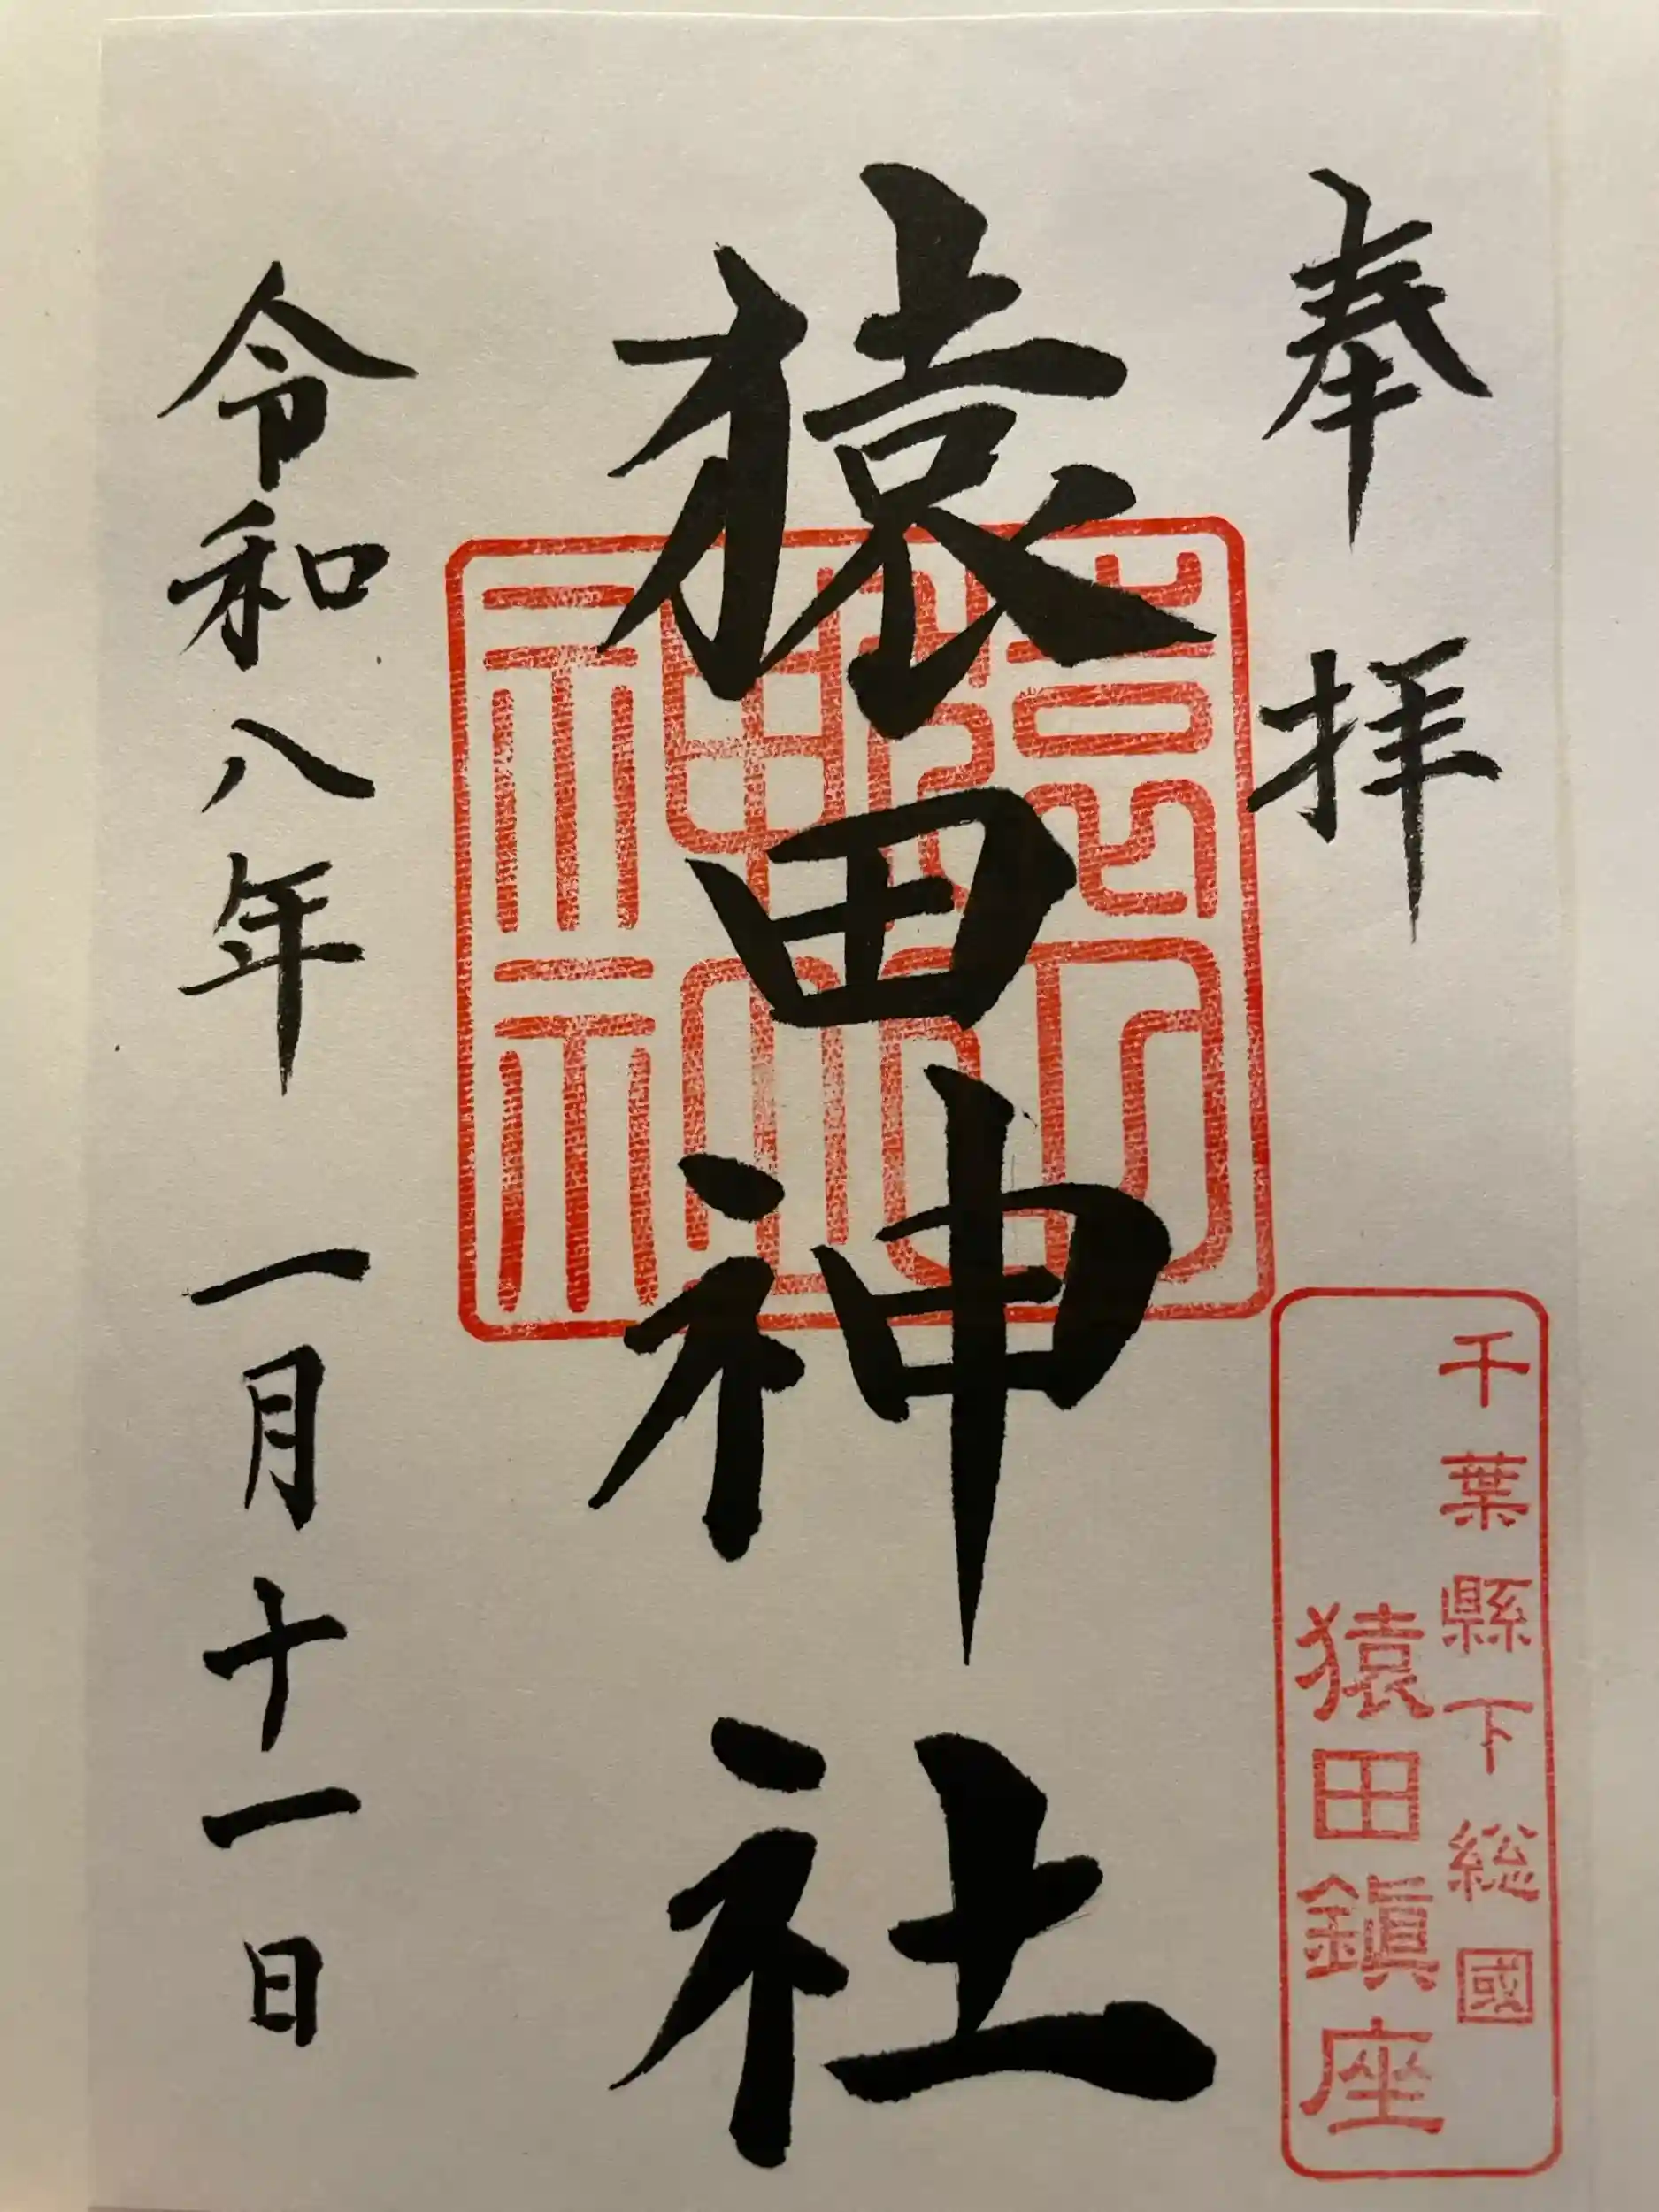 奉拝
千葉縣下総國
猿田鎭座
猿田神社
令和八年一月十一日